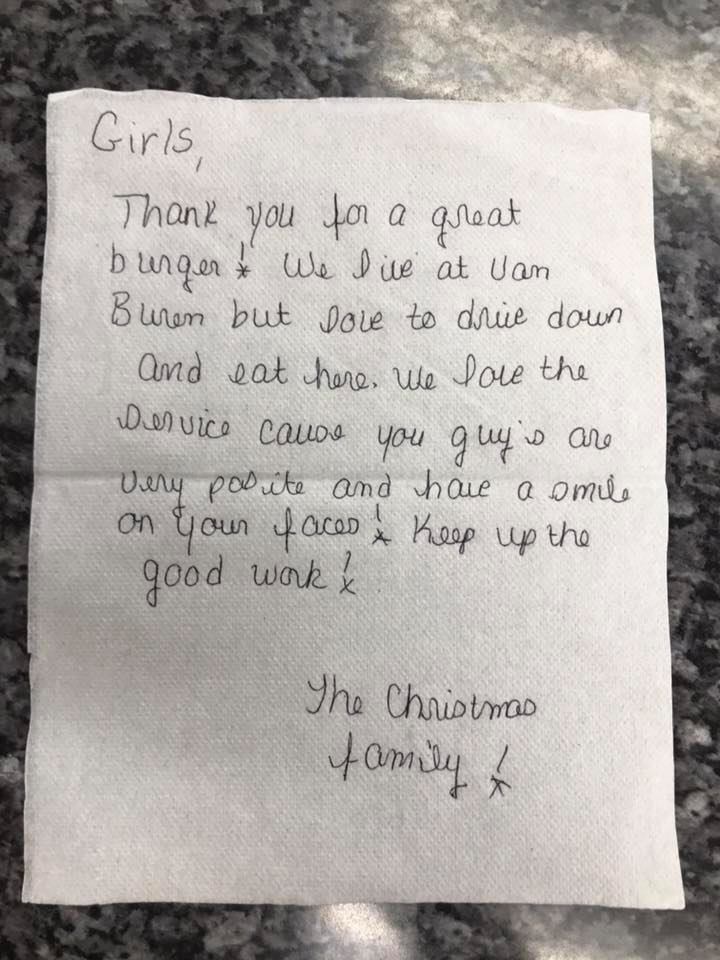 Girls,
Thank you for a great
burger! We live at Van
Buren but love to drive down
and eat here. We love the
service cause you guy's are
very posite and have a smile
on your faces! Keep up the
good work!
The Christmas
family!